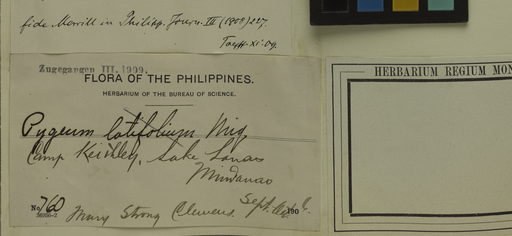 fide Merrill in Philipp. Journ. III (1908) 227.
Toepff. XI. 09.
Zugegangen III. 1909.
FLORA OF THE PHILIPPINES.
HERBARIUM OF THE BUREAU OF SCIENCE.
Pygeum latifolium Miq
Camp Keithley, Lake Lanao
Mindanao
No 760
Mary Strong Clemens. Sept. 190
HERBARIUM REGIUM MON